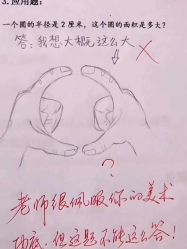 3. 应用题:
一个圆的半径是2厘米,这个圆的面积是多大?
答:我想大概这么大
?
老师很佩服你的美术
功底,但这题不能这么答!